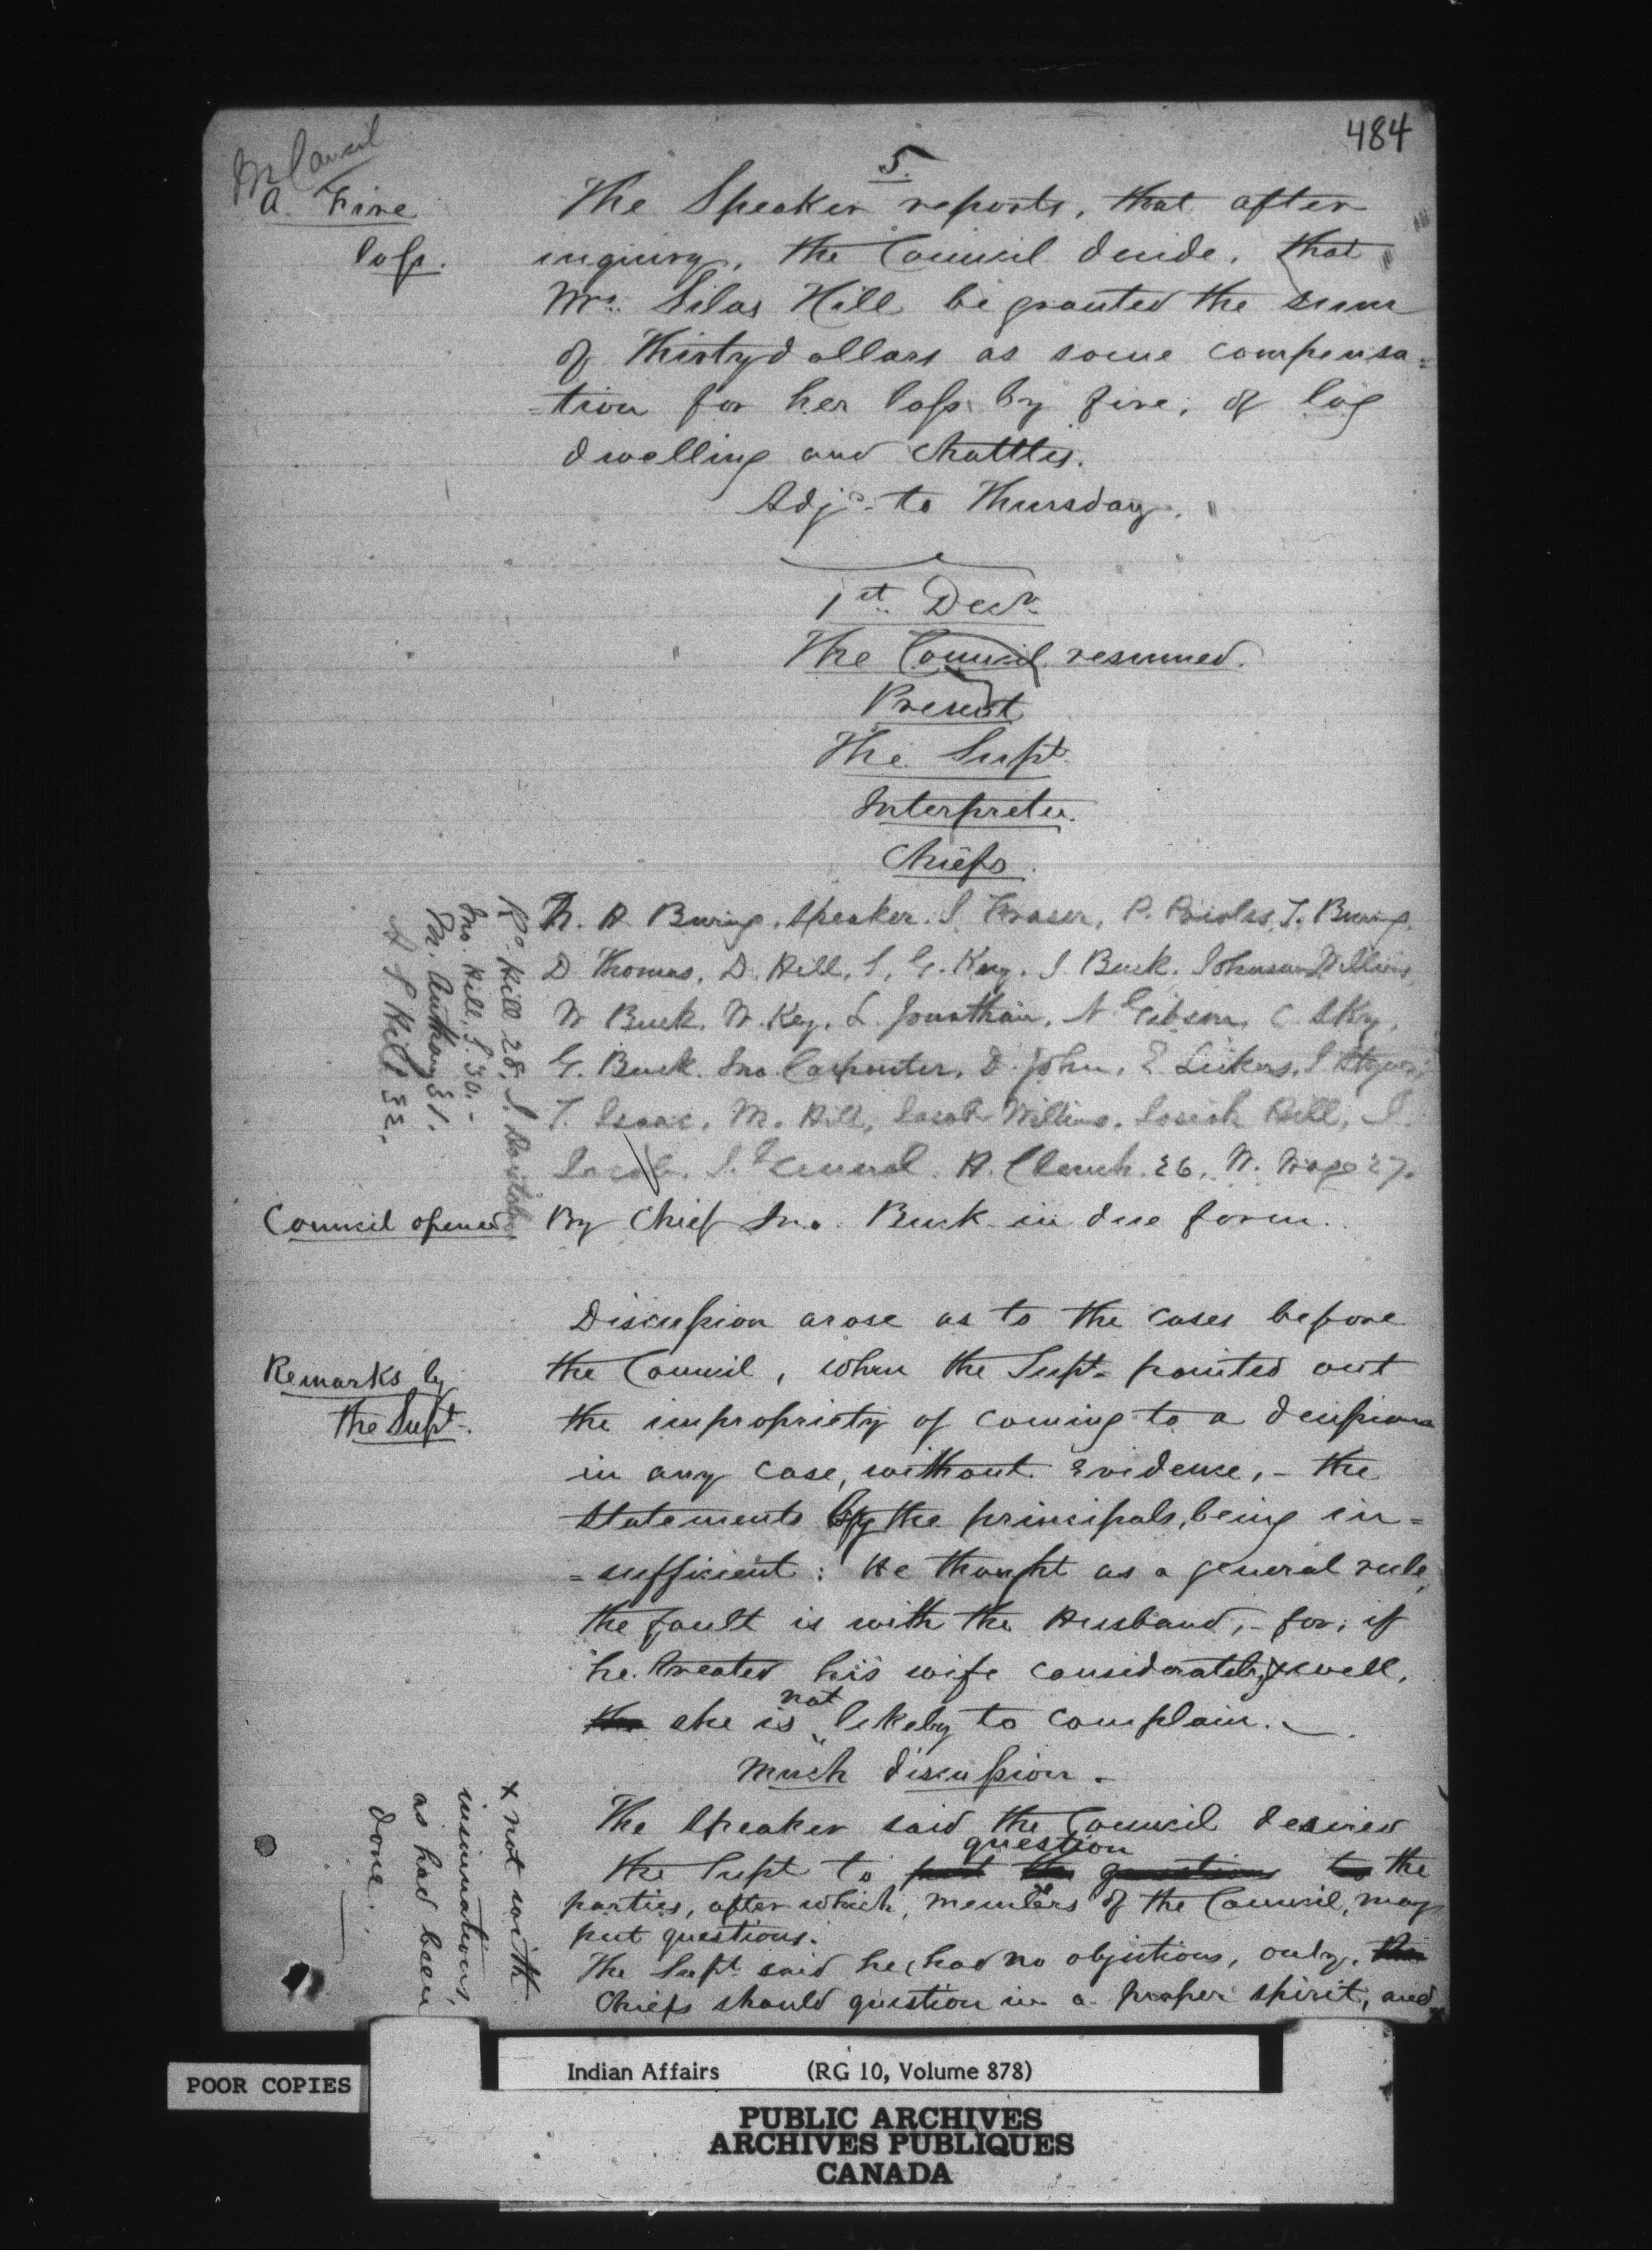 484
5.
In Council
A. Fire
loss.
The Speaker reports, that after
inquiry, the Council decide, that
Mrs. Silas Hill be granted the sum
of Thirty dollars as some compensa=
=tion for her loss by fire, of log
dwelling and chattles.
Adjd. to Thursday.
1st. Decr.
The Council resumed.
Present
The Supt.
Interpreter.
Chiefs.
Speaker. J. Fraser, P.
D Thomas, D. Hill, S. G. Key. J. Buck. Johnson Williams,
W Buck. W. Key. L. Jonathan. N Gibson, C. Sky,
G. Buck. Jno. Carpenter. D. John,
T. Isaac. M. Hill, Jacob Williams. Josiah Hill, J.
Jacob. J. General. A. Clench. 26. N.
Ro. Hill 28. J.
Jno. Hill, S. 30. -
Anthony 31.
Hill 32.
Council opened
By Chief Jno. Buck in due form.
Discussion arose as to the cases before
Remarks by
the Supt.
the Council, when the Supt. pointed out
the impropriety of coming to a decision
in any case, without Evidence, - the
statements by the principals, being in=
=sufficient: He thought as a general rule,
the fault is with the Husband, - for, if
he treated his wife considerately & well,
she is not likely to complain.
Much discussion.
The Speaker said the Council desired
the Supt to question the
parties, after which, members of the Council, may
put questions.
The Supt. said he had no objections, only, the
Chiefs should question in a proper spirit, and
x not with
insinuations,
as had been
done.
POOR COPIES
Indian Affairs (RG 10, Volume 878)
PUBLIC ARCHIVES
ARCHIVES PUBLIQUES
CANADA